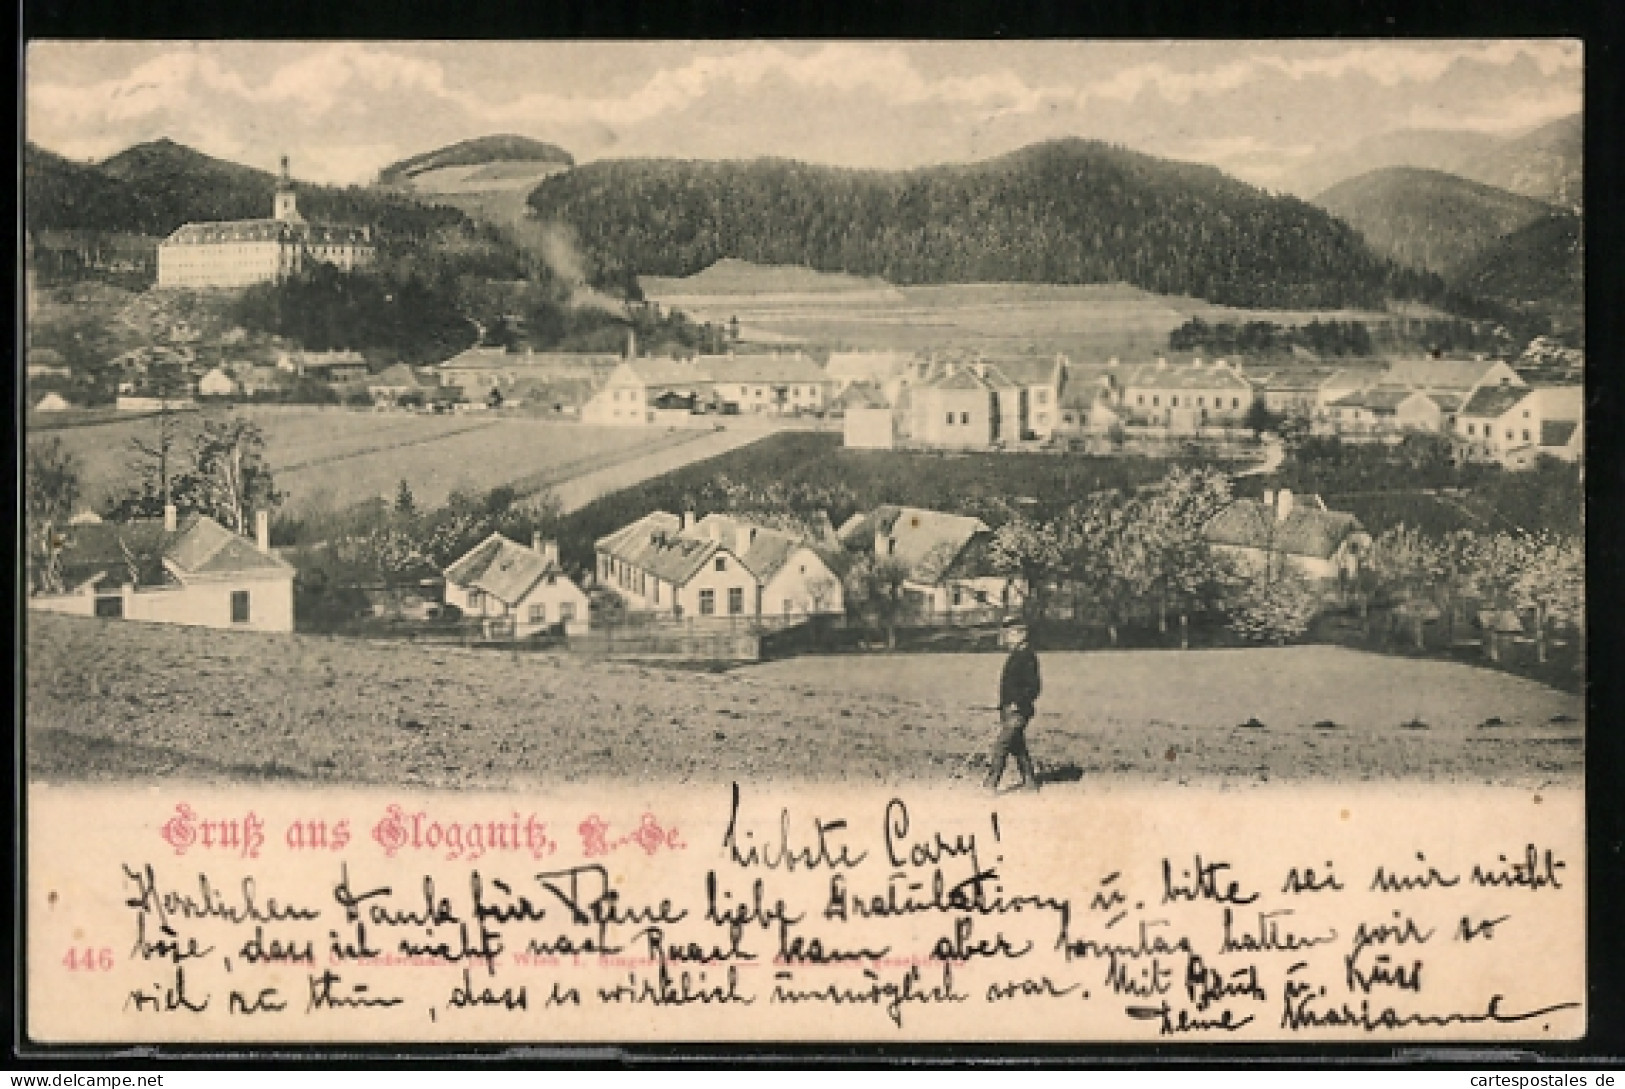 Gruß aus Gloggnitz, N.-Oe.
Liebste Cary!
Herzlichen Dank für Deine liebe Gratulation u. bitte sei mir nicht
böse, dass ich nicht nach kam aber Sonntag hatten wir so
446
viel zu thun, dass es wirklich unmöglich war. Mit Gruß u. Kuss
Deine Marianne.
cartespostales de